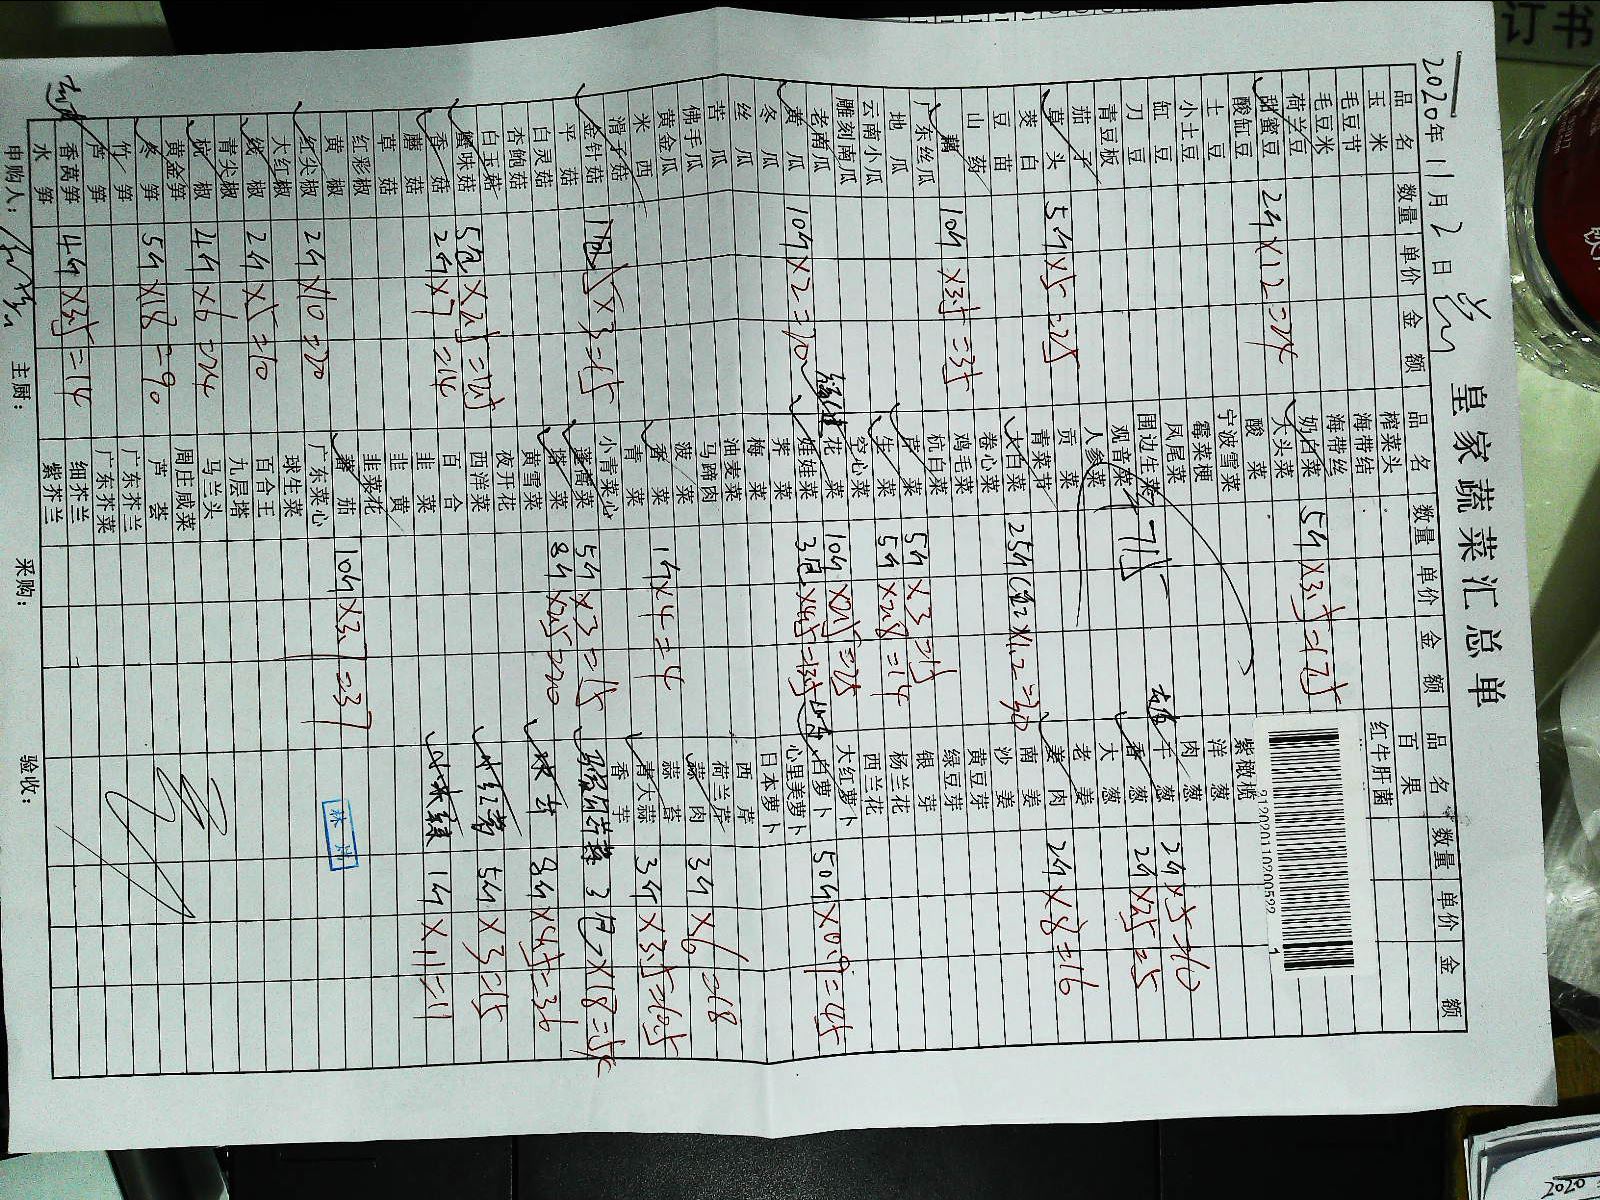 皇家蔬菜汇总单
2020年11月2日
品名 数量 单价 金额
玉米
毛豆节
毛豆米
荷兰豆
甜蜜豆 2斤×12=24
酸缸豆
土豆
小土豆
缸豆
刀豆
青豆板
茄子
草头 5斤×5=25
茭白
豆苗
山药
藕 10斤×3.5=35
广东丝瓜
地瓜
云南小瓜
雕刻南瓜
老南瓜
黄瓜 10斤×2=20
冬瓜
丝瓜
苦瓜
佛手瓜
黄金瓜
米西
滑子菇
金针菇
平菇
白灵菇
杏鲍菇
白玉菇
蟹味菇 5包×2.5=12.5
香菇 2斤×7=14
蘑菇
草菇
红彩椒
黄椒
红尖椒 2斤×10=20
大红椒
线椒 2斤×5=10
青尖椒
杭椒 4斤×6=24
黄金笋
冬笋 5斤×18=90
竹笋
芦笋
香莴笋 4斤×3.5=14
水笋
品名 数量 单价 金额
榨菜头
海带结
海带丝
奶白菜 5斤×3.5=17.5
大头菜
酸菜
宁波雪菜
霉菜梗
凤尾菜
围边生菜
观音菜
人参菜
贡菜
青菜节
大白菜
卷心菜
鸡毛菜
杭白菜
芹菜 5斤×3=15
生菜 5斤×2.8=14
空心菜
花菜 10斤×2.5=25
娃娃菜 3包×4.5=13.5
荠菜
梅菜
油麦菜
马蹄肉
菠菜
香菜 1斤×4=4
青菜
小青菜心
蓬蒿菜 5斤×3=15
塔菜 8斤×2.5=20
黄雪菜
夜开花
西洋菜
百合
韭菜
韭黄
韭菜花
蕃茄 10斤×3.7=37
广东菜心
球生菜
百合王
九层塔
马兰头
周庄咸菜
芦荟
广东芥兰
广东芥菜
细芥兰
紫芥兰
品名 数量 单价 金额
百果
红牛肝菌
212020110200522 1
紫橄榄
洋葱
肉葱
干葱 2斤×5=10
香葱 2斤×2.5=5
大葱
老姜
姜肉 2斤×8=16
南姜
沙姜
黄豆芽
绿豆芽
银芽
杨兰花
西兰花
大红萝卜
白萝卜 50斤×0.9=45
心里美萝卜
日本萝卜
西芹
荷兰芹
蒜肉 3斤×6=18
蒜苔
青大蒜 3斤×3.5=10.5
香芋
3包×18=54
8斤×4.5=36
小红薯 5斤×3=15
1斤×11=11
申购人： 主厨： 采购： 验收：
订书